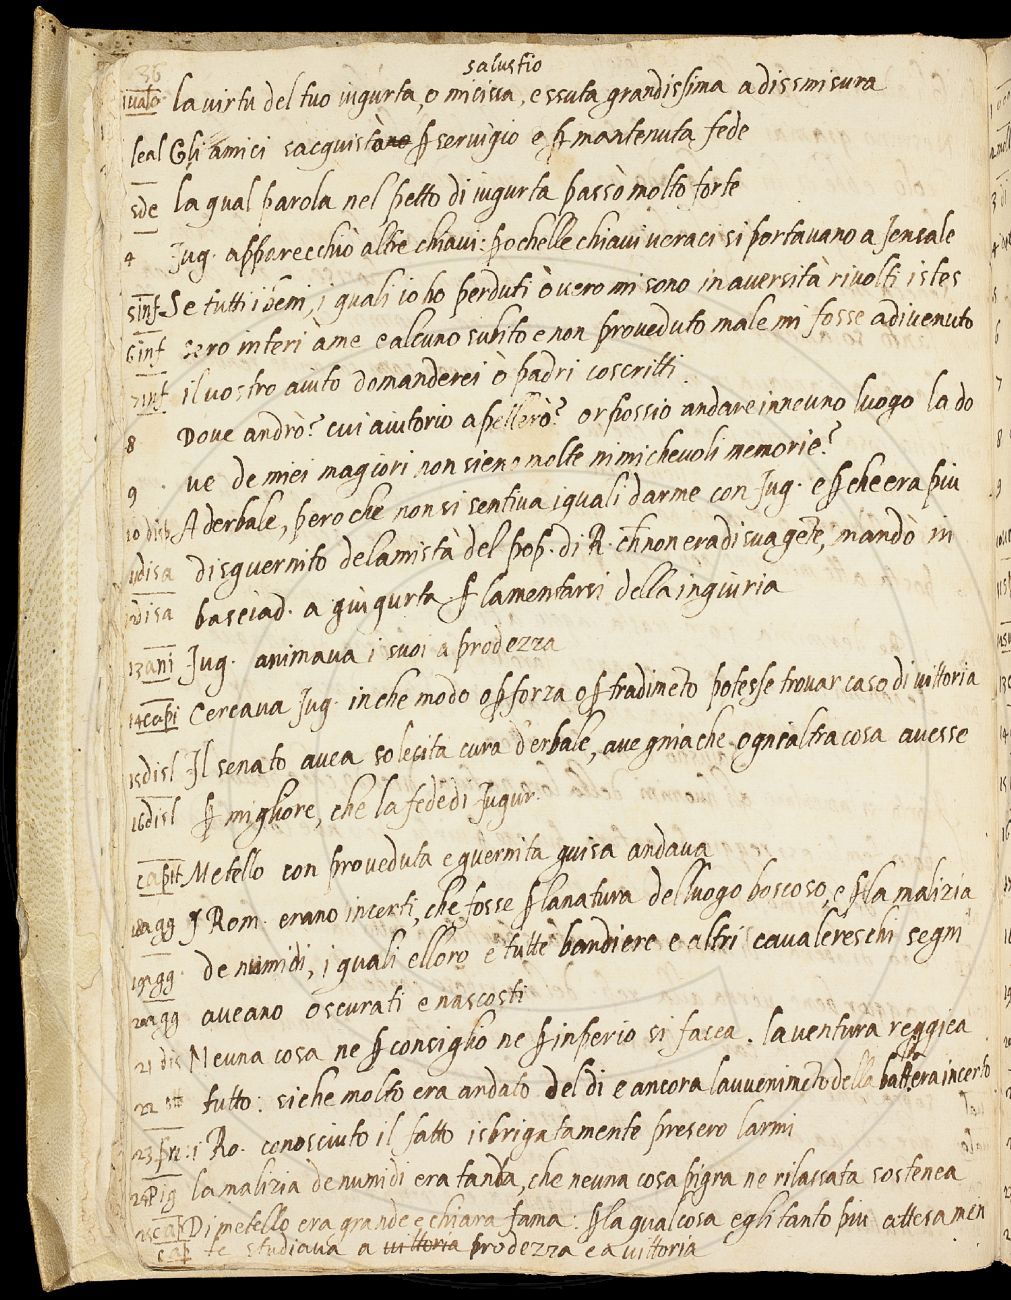 36
salustio
1valo la virtu del tuo iugurta, o micisa, e ssuta grandissima a dissmisura
leal Gli amici sacquistàno ꝑ servigio e ꝑ mantenuta fede
sde la qual parola nel petto di iugurta passò molto forte
4 Jug. apparecchiò altre chiavi: ꝑochelle chiavi veraci si portavano a
5inf Se tutti i beni, i quali io ho perduti òvero mi sono in aversità rivolti istes
6inf sero interi à me e alcuno subito e non proveduto male mi fosse adivenuto
7inf il vostro aiuto domanderei ò padri coscritti.
8 Dove andrò? cui aiutorio apellerò? or possio andare inneuno luogo la do
9 ve de miei magiori non sieno molte nimichevoli memorie?
10 disb Aderbale, pero che non si sentiva iguali darme con Jug. e ꝑ che era piu
11disa disguernito delamistà del pop. di R. ch̃ non era di sua gẽte, mandò in
12disa basciad. a giugurta ꝑ lamentarsi della ingiuria
13ani Jug. animava i suoi a prodezza
14capi Cercava Jug. in che modo o ꝑ forza o ꝑ tradimẽto potesse trovar caso di vittoria
15disl Il senato avea solecita cura d'erbale, avegnia che ogni altra cosa avesse
16disl ꝑ migliore, che la fede di Jugur.
capit Metello con proveduta e guernita guisa andava
18agg J Rom. erano incerti, che fosse ꝑ la natura del luogo boscoso, e ꝑ la malizia
19agg de numidi, i quali elloro e tutte bandiere e altri cavalereschi segni
20agg aveano oscurati e nascosti
21 dis Neuna cosa ne ꝑ consiglio ne ꝑ inperio si facea. la ventura reggiea
22 tutto: siche molto era andato del di e ancora lavvenimẽto della batt. era incerto
23 i Ro. conosciuto il fatto isbrigatamente presero larmi
pig la malizia de numidi era tanta, che neuna cosa pigra ne rilassata sostenea
25cap Di metello era grande e chiara fama: ꝑ la qual cosa egli tanto piu attesamen
cap te studiava a vittoria prodezza e a vittoria